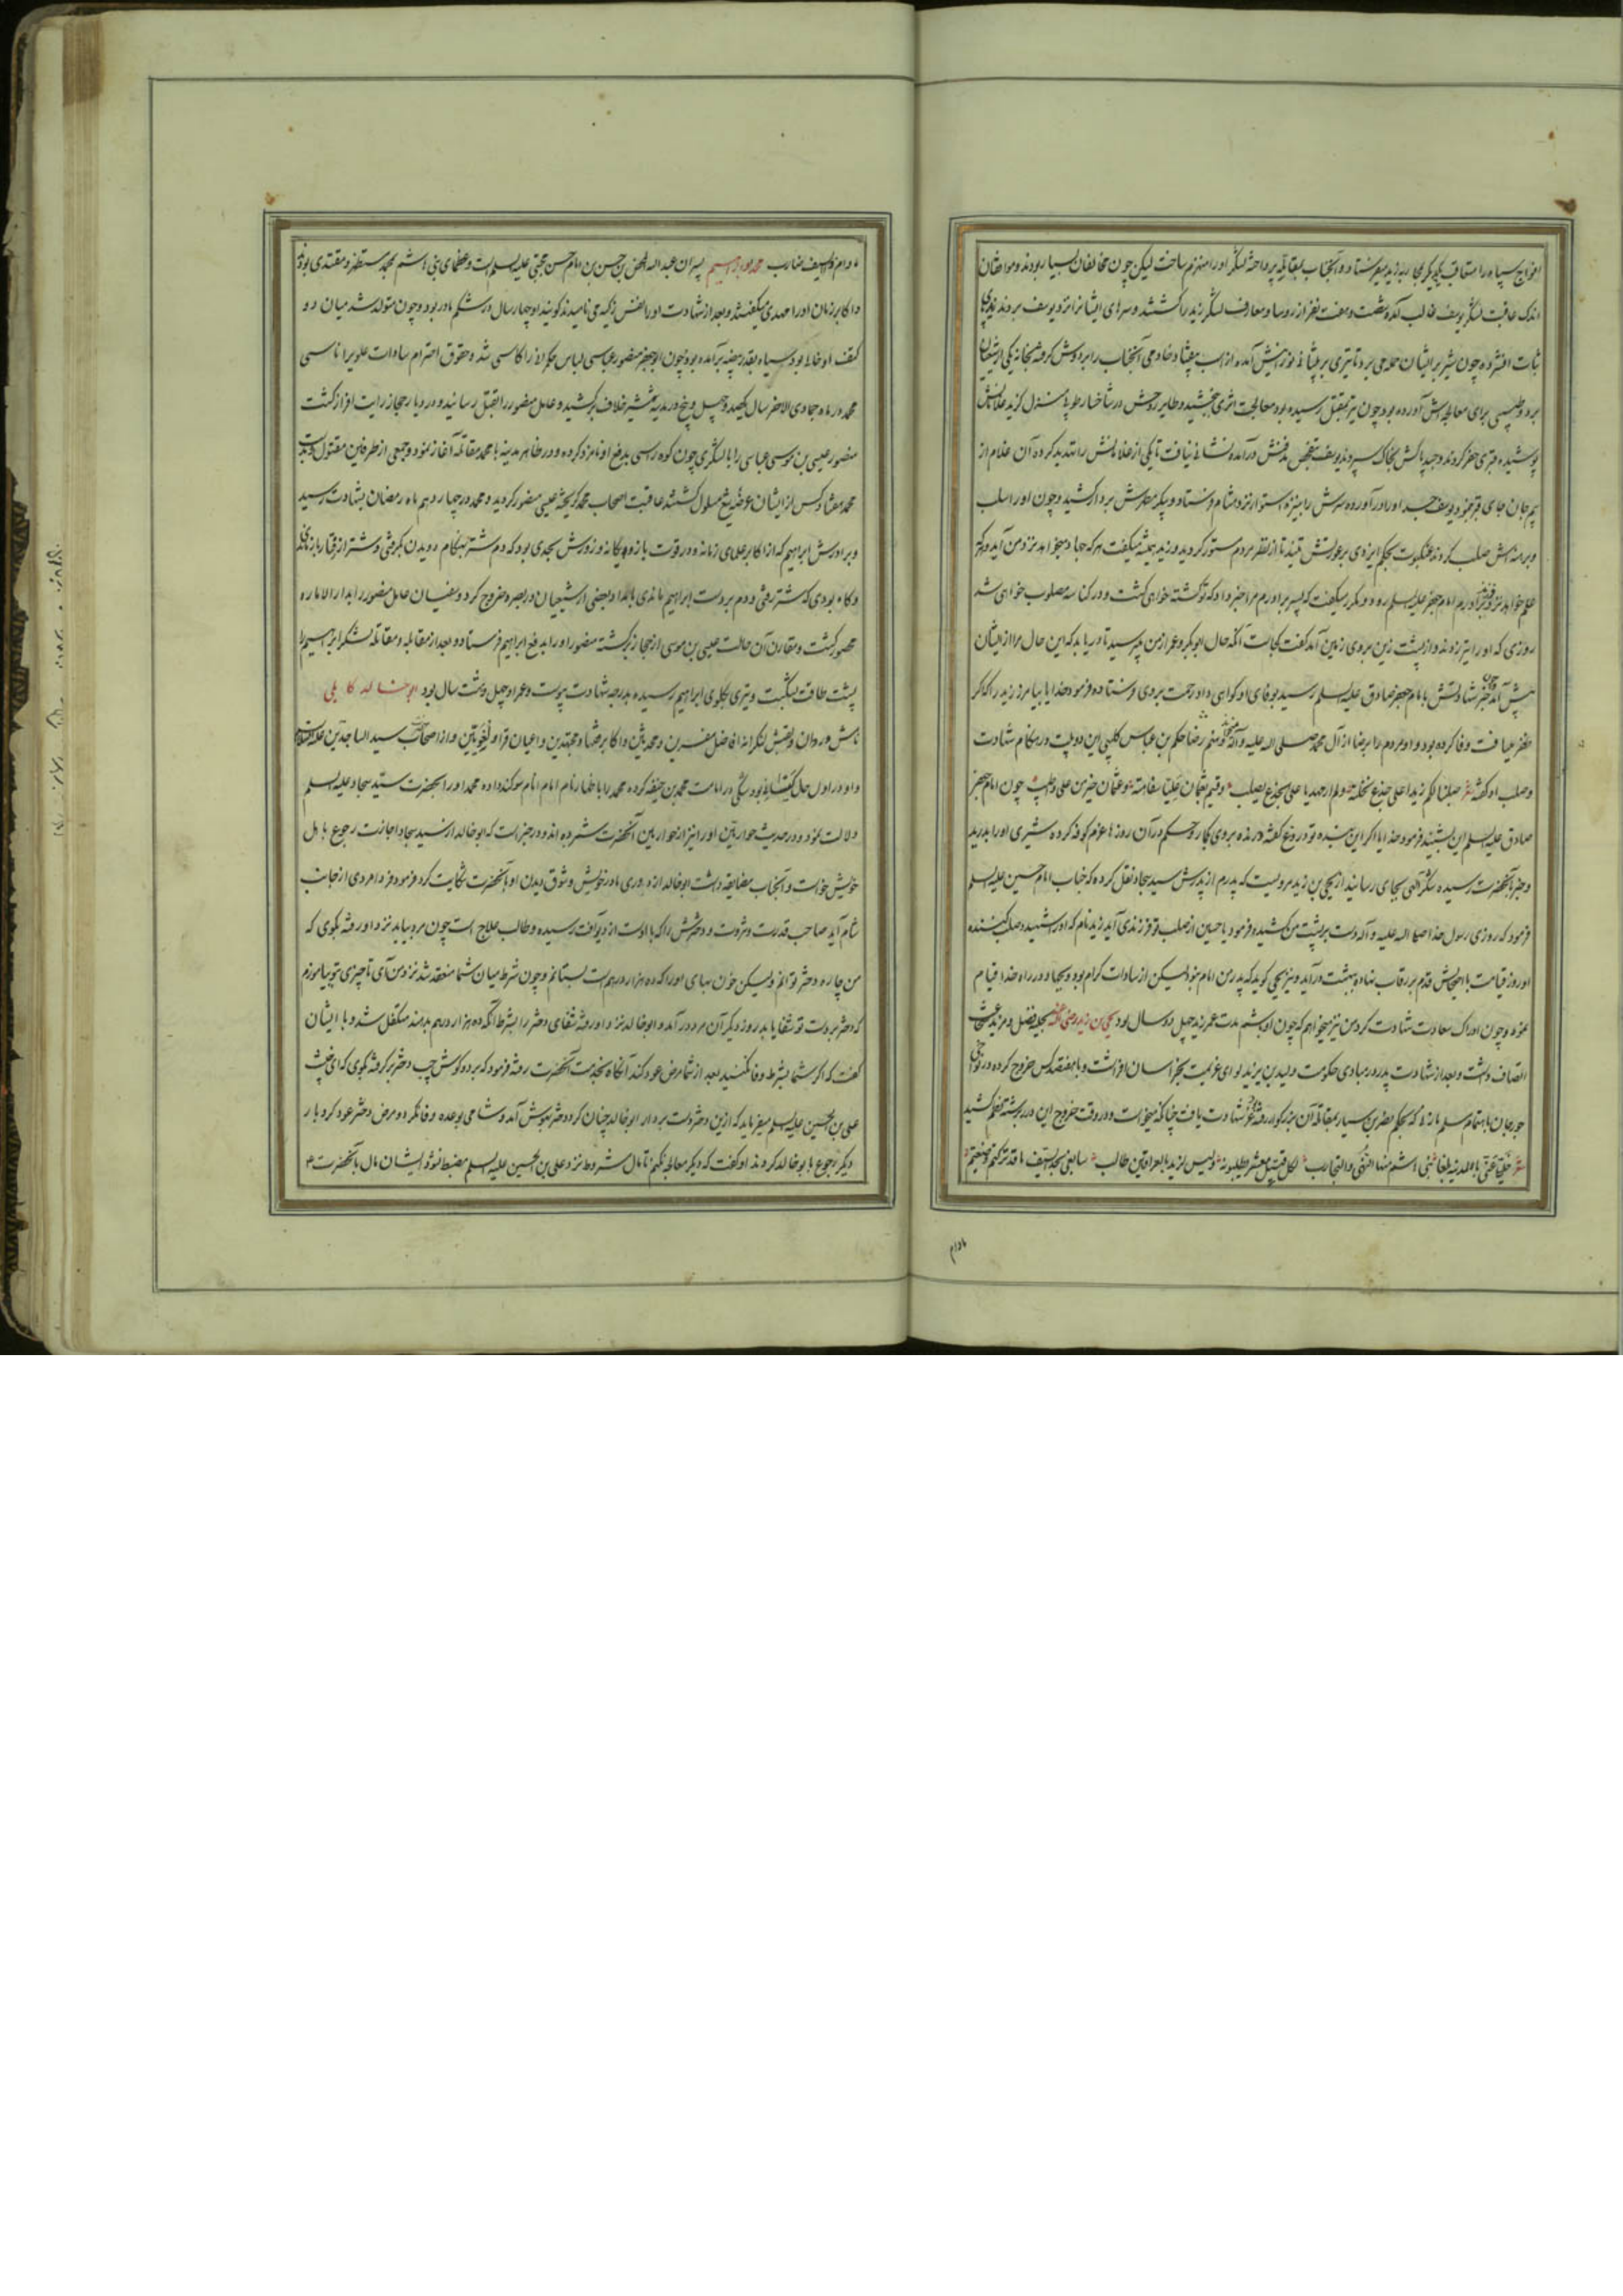 افواج سپاه را متعاقب یکدیگر بمحاربه زید میفرستاد و آنجناب بمقابله پرداخته لشکر او را منهزم ساخت لیکن چون مخالفان بسیار بودند و موافقان
اندک عاقبت لشکر یوسف غالب آمد و شصت و هفت نفر از روسا و معارف لشکر زید را کشتند و سرهای ایشانرا نزد یوسف بردند زید پای
ثبات افشرده چون شیر بر ایشان حمله می برد تا تیری بر پیشانی نورانیش آمده از اسب بیفتاد و خادمی آنجناب را بر دوش گرفته بخانه یکی از شیعیان
برد و طبیبی برای معالجه اش آورده بود چون تیر بمقتل رسیده بود معالجت اثری نبخشید و طایر روحش در شاخسار طوبی منزل گزید غلامانش
پوشیده قبری حفر کردند و جسد پاکش بخاک سپردند یوسف بتفحص مدفنش درآمده نشانی نیافت تا یکی از غلامانش را تهدید کرده آن غلام از
بیم جان جای قبر بنمود یوسف جسد او را در آورده سرش را بنیزه استوار نزد هشام فرستاد و پیکر مطهرش بردار کشید و چون او را سلب
و برهنه اش صلب کردند عنکبوت بحکم ایزدی بر عورتش تنید تا از نظر مردم مستور گردید و زید همیشه میگفت هر که جهاد میخواهد نزد من آید و هر که
علم خواهد نزد برادرزاده ام امام جعفر علیه السلم رود و مکرر میگفت که پسر برادرم مرا خبر داده که تو کشته خواهی گشت و در کناسه مصلوب خواهی شد
روزی که او را تیر زدند و از پشت زین بر روی زمین آمد گفت کجاست آنکه حال ابوبکر و عمر از من میپرسید تا دریابد که این حال مرا از ایشان
پیش آمد چون خبر شهادتش بامام جعفر صادق علیه السلم رسید بوفای او گواهی داد و رحمت بر وی فرستاده فرمود خدایا بیامرز زید را که اگر
ظفر میافت وفا کرده بود و او مردم را برضا از آل محمد صلی الله علیه و آله میخواند و منم رضا حکم بن عباس کلبی این دو بیت در هنگام شهادت
و صلب او گفته شعر صلبنا لکم زیدا علی جذع نخلة ولم ار مهدیا علی الجذع یصلب وقستم بعثمان علیا سفاهة وعثمان خیر من علی واطیب چون امام جعفر
صادق علیه السلم این بشنید فرمود خدایا اگر این بنده تو دروغ گفته درنده بر وی گمار و حکم در آن روزها عزم کوفه کرده شیری او را بدرید
و خبر بآنحضرت رسیده شکر الهی بجای رسانید از یحیی بن زید مرویست که پدرم از پدرش سید سجاد نقل کرده که جناب امام حسین علیه السلم
فرمود که روزی رسول خدا صلی الله علیه و آله دست بر پشت من کشیده فرمود یا حسین از صلب تو فرزندی آید زید نام که او را شهید و صلب کنند
او روز قیامت با اصحابش قدم بر رقاب نهاده ببهشت درآید و نیز یحیی گوید که پدر من امام نبود لیکن از سادات کرام بود و بجهاد در راه خدا قیام
نموده و چون ادراک سعادت شهادت کرد من نیز میخواهم که چون او باشم مدت عمر زید چهل دو سال بود یحیی بن زید رضی الله عنه بمجد و فضل و مزید شجاعت
اتصاف داشت و بعد از شهادت پدر در مبادی حکومت ولید بن یزید لوای عزیمت بخراسان افراشت و با هفتصد کس خروج کرده در نواحی
جوزجان باهتمام سلم مازنی که بحکم نصر بن سیار بمقاتله آن بزرگوار رفته بود شهادت یافت چنانکه میخواست و در وقت خروج این درر برشته نظم کشید
شعر خلیلی عنی بالمدینة بلغا بنی هاشم اهل النهی والتجارب لکل قتیل معشر یطلبونه ولیس لزید بالعراقین طالب
مادام
مادام و السیف ضارب محمد و ابراهیم پسران عبد الله المحض بن حسن بن امام حسن مجتبی علیه السلم است و عظمای بنی هاشم بمحمد مستظهر و مقتدی بودند
و اکابر زمان او را مهدی میگفتند و بعد از شهادت او را نفس زکیه می نامیدند گویند او چهار سال در شکم مادر بود و چون متولد شد میان دو
کتف او خالی بود سیاه بقدر بیضه برآمده بود و چون ابو جعفر منصور عباسی لباس مکرمت را کاسی شد و حقوق احترام سادات علویرا ناسی
محمد در ماه جمادی الاخر سال یکصد و چهل و پنج در مدینه شمشیر خلاف برکشید و عامل منصور را بقتل رسانید و در دیار حجاز رایت افراز گشت
منصور عیسی بن موسی عباسی را با لشکری چون کوه راسی بدفع او نامزد کرده و در ظاهر مدینه با محمد مقاتله آغاز نمود و جمعی از طرفین مقتول و بدست
محمد هفتاد کس از ایشان عرضه تیغ مسلول گشتند عاقبت اصحاب محمد گریخته عیسی منصور گردید و محمد در چهاردهم ماه رمضان بشهادت رسید
و برادرش ابراهیم که از اکابر علمای زمانه و در قوت بازو یگانه و زورش بحدی بود که دم شتر بهنگام دویدن بگرفتی و شتر از رفتار بازماندی
و گاه بودی که شتر رفتی و دم بر دست ابراهیم ماندی با امداد بعضی از شیعیان در بصره خروج کرد و سفیان عامل منصور را بدار الاماره
محصور گشت و مقارن آن حالت عیسی بن موسی از حجاز برگشته منصور او را بدفع ابراهیم فرستاد و بعد از مقابله و مقاتله لشکر ابراهیم را
پشت طاقت بشکست و تیری بگلوی ابراهیم رسیده بدرجه شهادت پیوست و عمر او چهل و هشت سال بود ابو خالد کابلی
نامش وردان و لقبش کنکر از افاضل مفسرین و محدثین و اکابر فقها و مجتهدین و اعیان قراء و لغویین و از اصحاب سید الساجدین علیه السلام
و او در اول حال کیسانی بود و شکی در امامت محمد بن حنفیه کرده محمد را باظهار نام امام انام سوگند داده محمد او را بحضرت سید سجاد علیه السلم
دلالت نمود و در حدیث حواریین او را نیز از حواریین آنحضرت شمرده اند و در خبر است که ابو خالد از سید سجاد اجازت رجوع باهل
خویش خواست و آنجناب مضایقه داشت ابو خالد از دوری مادر خویش و شوق دیدن او بآنحضرت شکایت کرد فرمود فردا مردی از جانب
شام آید صاحب قدرت و ثروت و دخترش را که با اوست از دیو آفت رسیده و طالب علاج است چون مرد بیاید نزد او رفته بگوی که
من چاره دختر توانم و لیکن خون بهای او را که ده هزار درهم است بستانم و چون شرط میان شما منعقد شد نزد من آی تا چیزی بتو بیاموزم
که دختر بر دست تو شفا یابد روز دیگر آن مرد درآمد و ابو خالد نزد او رفته شفای دختر را بشرط آنکه ده هزار درهم بدهند متکفل شد و با ایشان
گفت که اگر شما بشرط وفا نکنید بعد از شفا مرض عود کند آنگاه بخدمت آنحضرت رفته فرمود که برو و گوش چپ دختر بر گرفته بگوی که ای خبیث
علی بن الحسین علیه السلم میفرماید که ازین دختر دست بردار ابو خالد چنان کرد و دختر بهوش آمد و شامی بوعده وفا نکرد و مرض دختر عود کرد بار
دیگر رجوع بابو خالد کردند او گفت که دیگر معالجه نکنم تا مال مشروط نزد علی بن الحسین علیه السلم مضبط نشود ایشان مال بآنحضرت